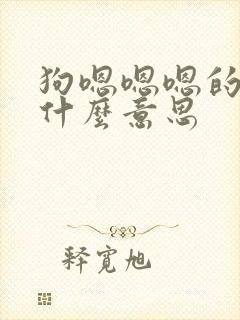 狗嗯嗯嗯的
什麼意思
释宽旭